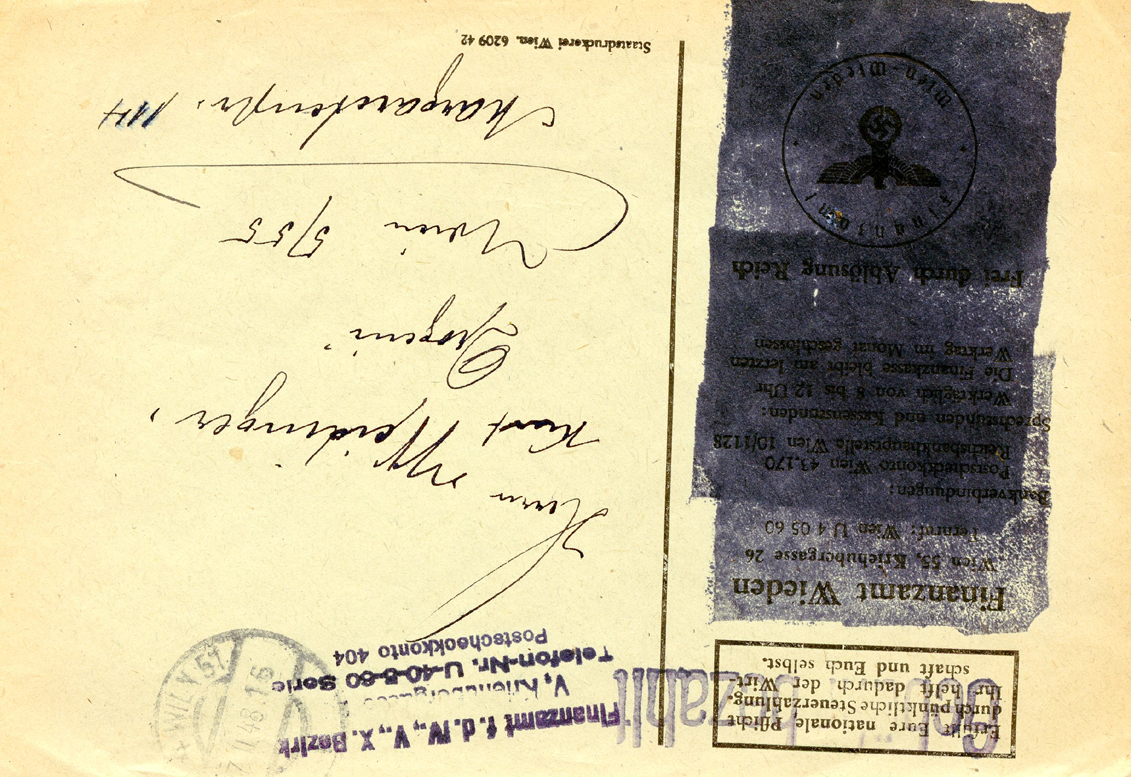 Erfüllt Eure nationale Pflicht
durch pünktliche Steuerzahlung.
Ihr helft dadurch der Wirt-
schaft und Euch selbst.
Finanzamt Wieden
Wien 55, Kriehubergasse 26
Fernruf: Wien U 4 05 60
Bankverbindungen:
Postscheckkonto Wien 43.170
Reichsbankhauptstelle Wien 10/1128
Sprechstunden und Kassenstunden:
Werktäglich von 8 bis 12 Uhr
Die Finanzkasse bleibt am letzten
Werktag im Monat geschlossen
Frei durch Ablösung Reich
Finanzamt
Wien-Wieden
Finanzamt f. d. IV., V., X. Bezirk
V, Kriehubergasse
Telefon-Nr. U-40-5-60 Serie
Postscheckkonto 404
bezahlt
WIEN
Herrn
Karl Weidinger,
Drogerie
Wien 5/55
Margaretenstr.
Staatsdruckerei Wien. 6209 42